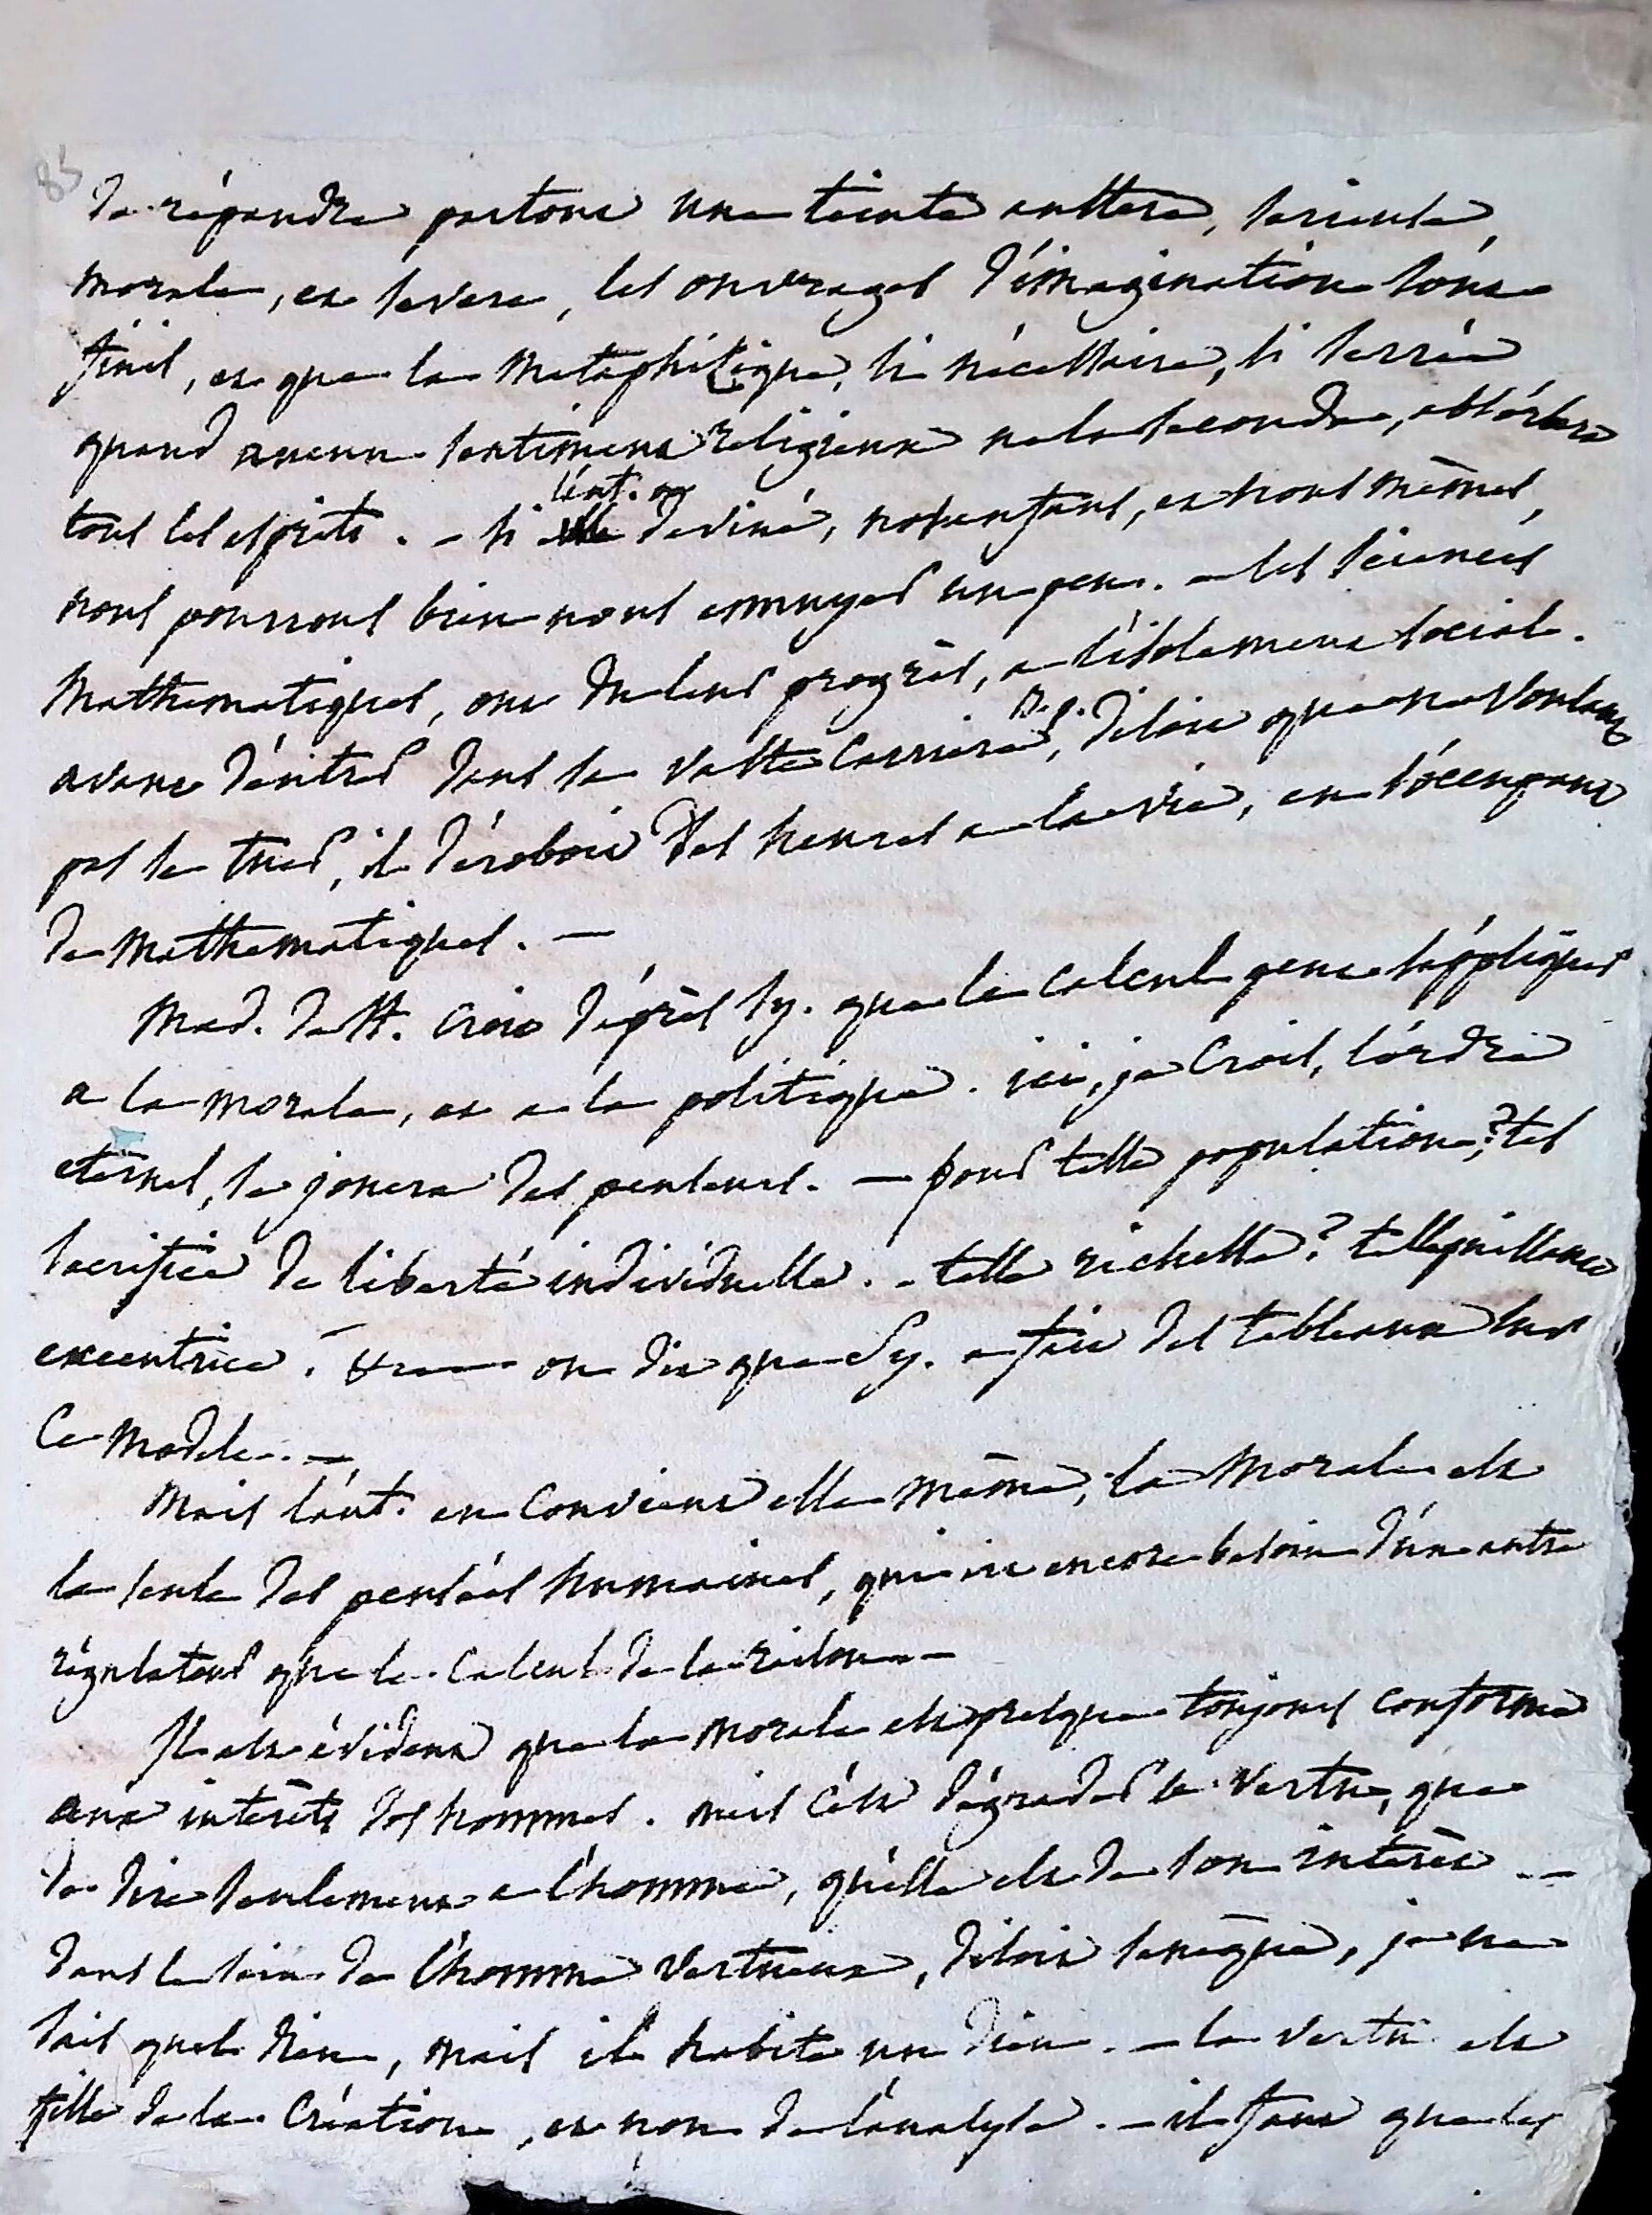 85
de répandre partout une teinte austere, serieuse,
morale, et severe, les ouvrages d'imagination sont
finis, et que la Metaphisique, si nécessaire, si serrée
quand aucun sentiment religieux ne la seconde, absórbera
tous les esprits. - si l'aut. a deviné, nos enfans, et nous mêmes,
nous pourrons bien nous ennuyer un peu. - les sciences
Mathematiques, ont du leur progrès, a l'isolement social.
avant d'entrer dans sa vaste carriere, B. p. disait que ne voulant
pas se tuer, il déroboit des heures a la vie, en s'occupant
de Mathematiques. -
Mad. de St. croit d'après Sy. que le calcul peut s'appliquer
a la morale, et a la politique. ici, je crois, l'ordre
eternel, se jouera des penseurs. - pour telle population? tel
sacrifice de liberté individuelle. - telle richesse? telle puissance
excentrice. on dit que Sy. a fait des tableaux sur
ce modele. -
Mais l'aut. en convient elle même, la morale est
la seule des pensées humaines, qui ait encore besoin d'un autre
régulateur que le calcul de la raison -
Il est évident que la morale est presque toujours conforme
aux intérêts des hommes. mais c'est dégrader la vertu, que
de dire seulement a l'homme, qu'elle est de son intérêt --
dans le sein de l'homme vertueux, disoit seneque, je ne
sais quel Dieu, mais il habite un dieu. - la vertu est
fille de la création, et non de l'analyse. - il faut que les